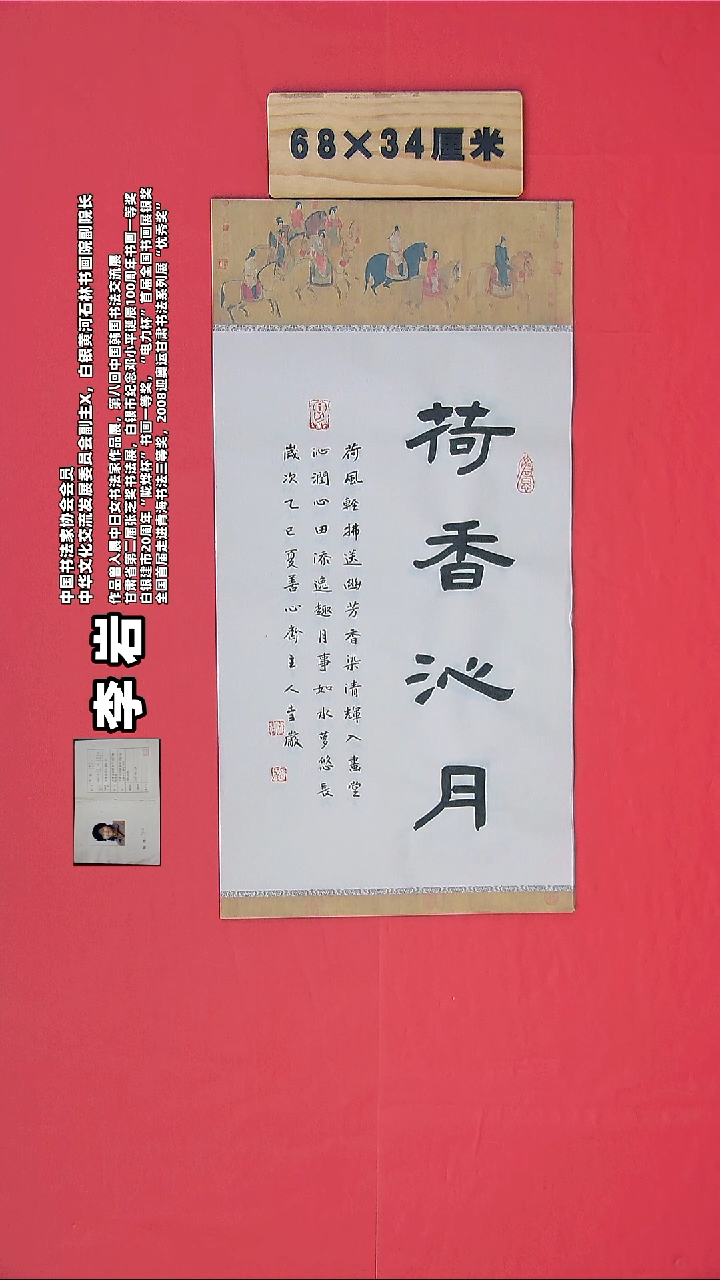 68×34厘米
荷香沁月
荷風輕拂送幽芳香染清輝入畫堂
沁潤心田添逸趣月事如水夢悠長
歲次乙巳夏善心齋主人書嚴
中国书法家协会会员
中华文化交流发展委员会副主义，白银黄河石林书画院副院长
作品曾入展中日女书法家作品展，第八回中国韩国书法交流展
甘肃省第二届张芝奖书法展，白银市纪念邓小平诞辰100周年书画一等奖
白银建市20周年“陇烨杯”书画一等奖，“电力杯”首届全国书画展银奖
全国首届走进青海书法三等奖，2008迎奥运甘肃书法系列展“优秀奖”
李岩